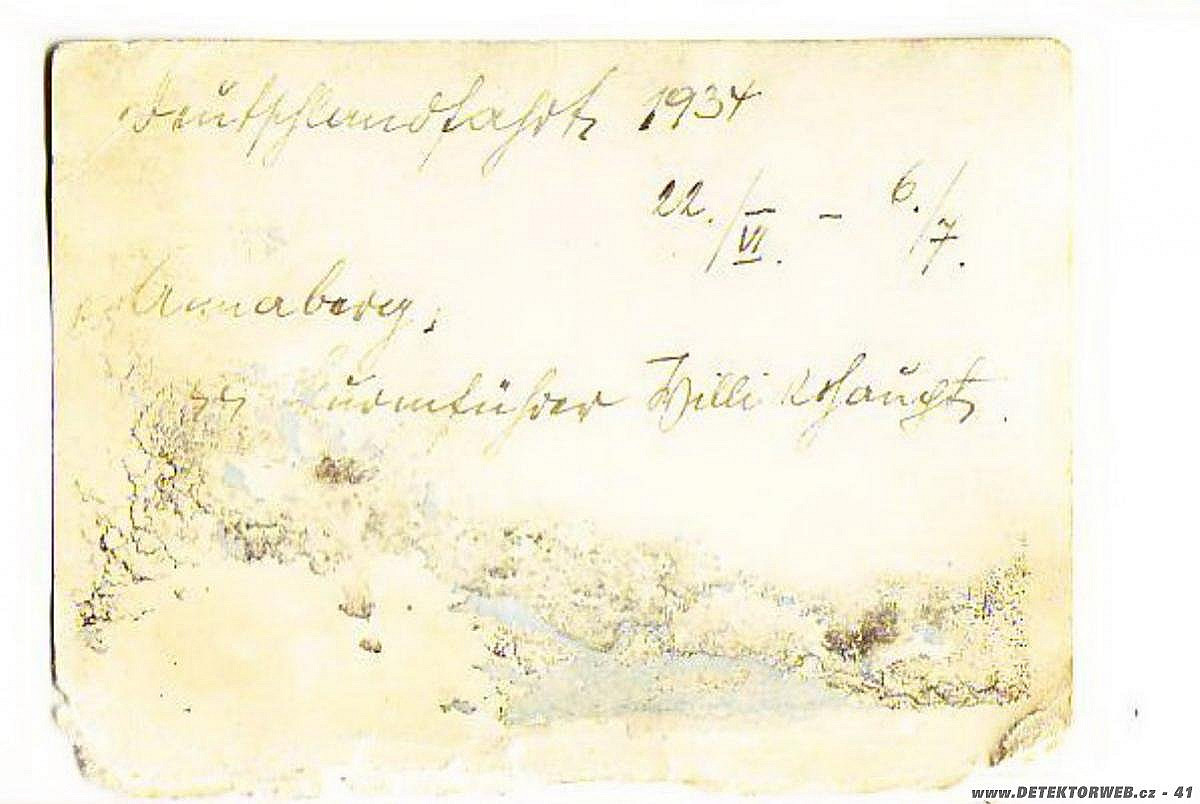 Deutschlandfahrt 1934
22./VI. - 6./7.
Annaberg,
Willi
www.DETEKTORWEB.cz - 41